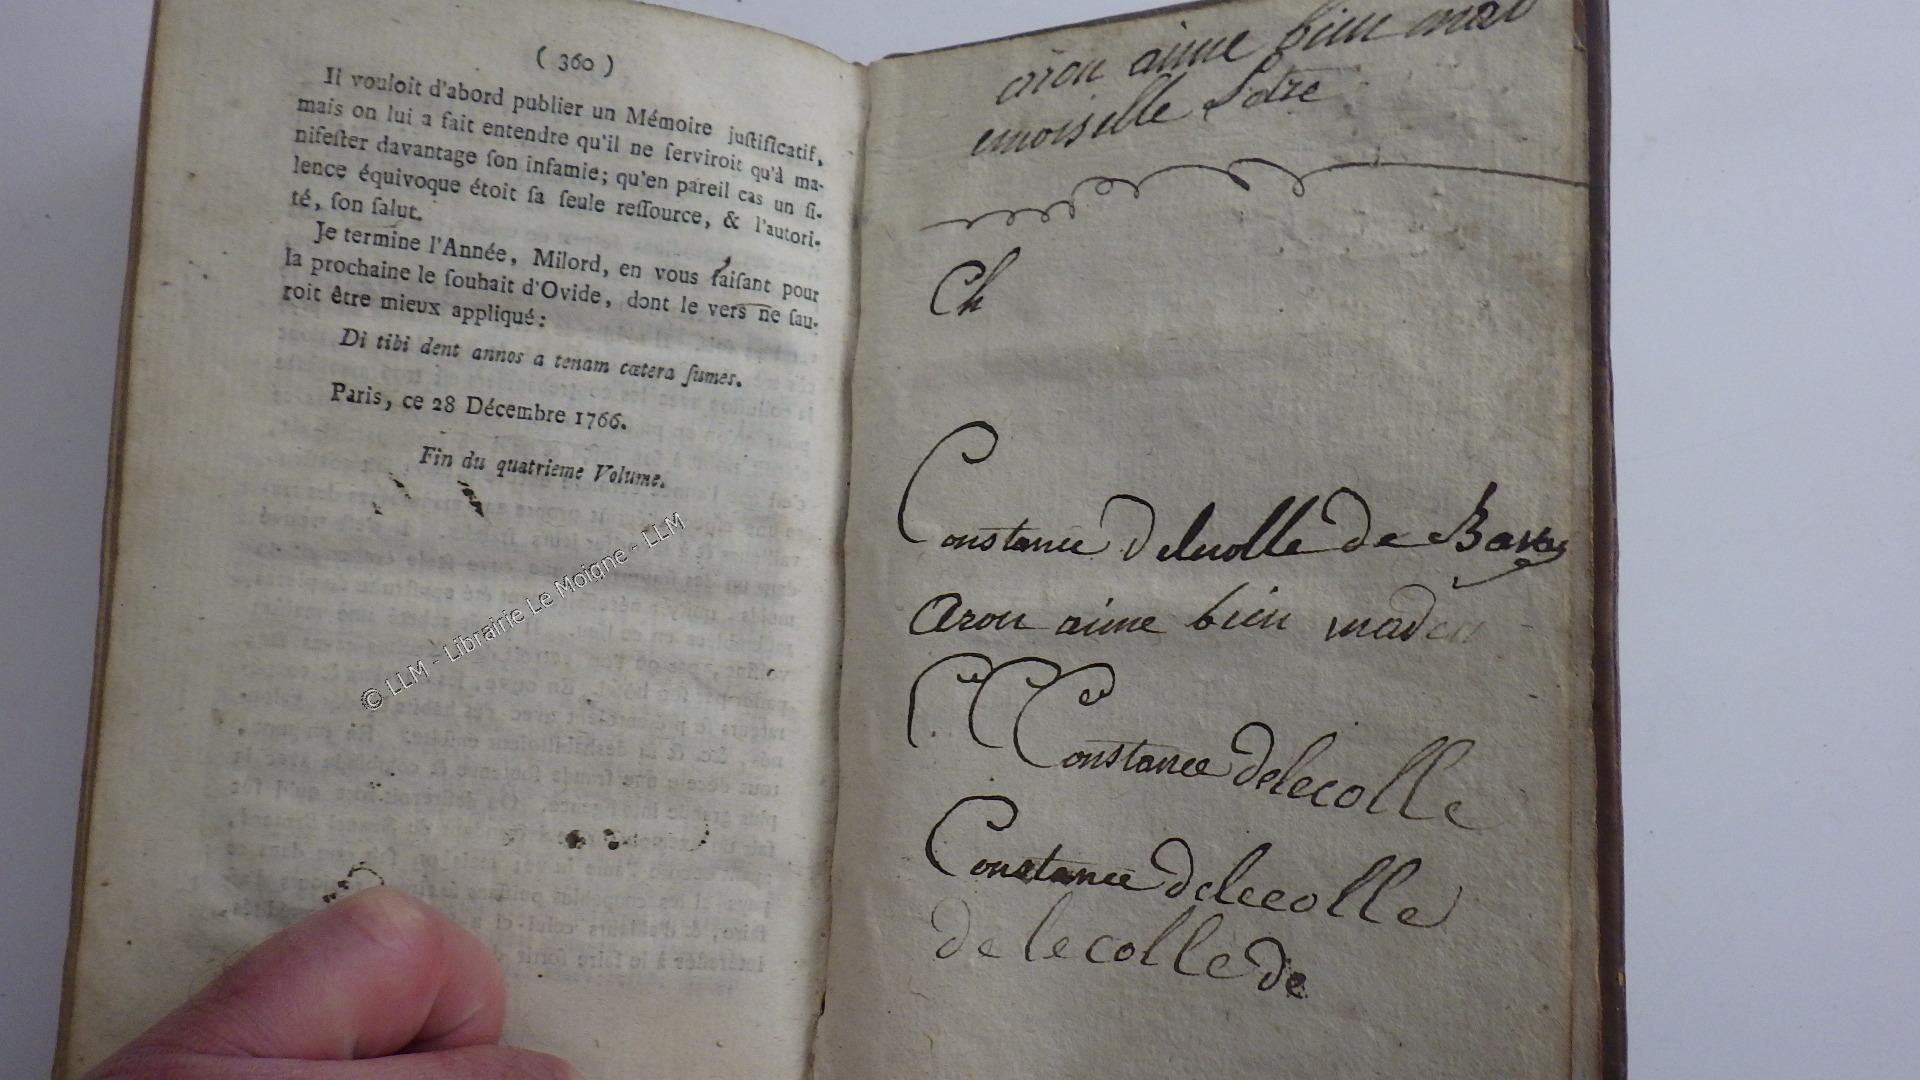 ( 360 )
Il vouloit d'abord publier un Mémoire juſtificatif,
mais on lui a fait entendre qu'il ne ſerviroit qu'à ma-
nifeſter davantage ſon infamie; qu'en pareil cas un ſi-
lence équivoque étoit ſa ſeule reſſource, & l'autori-
té, ſon ſalut.
Je termine l'Année, Milord, en vous faiſant pour
la prochaine le ſouhait d'Ovide, dont le vers ne ſau-
roit être mieux appliqué:
Di tibi dent annos a tenam cætera ſumes.
Paris, ce 28 Décembre 1766.
Fin du quatrieme Volume.
© LLM - Librairie Le Moigne - LLM
aron aime bien mad
emoiselle
Ch
Constance Delecolle de
aron aime bien mad
C C Constance delecolle
Constance delecolle
de lecolle de